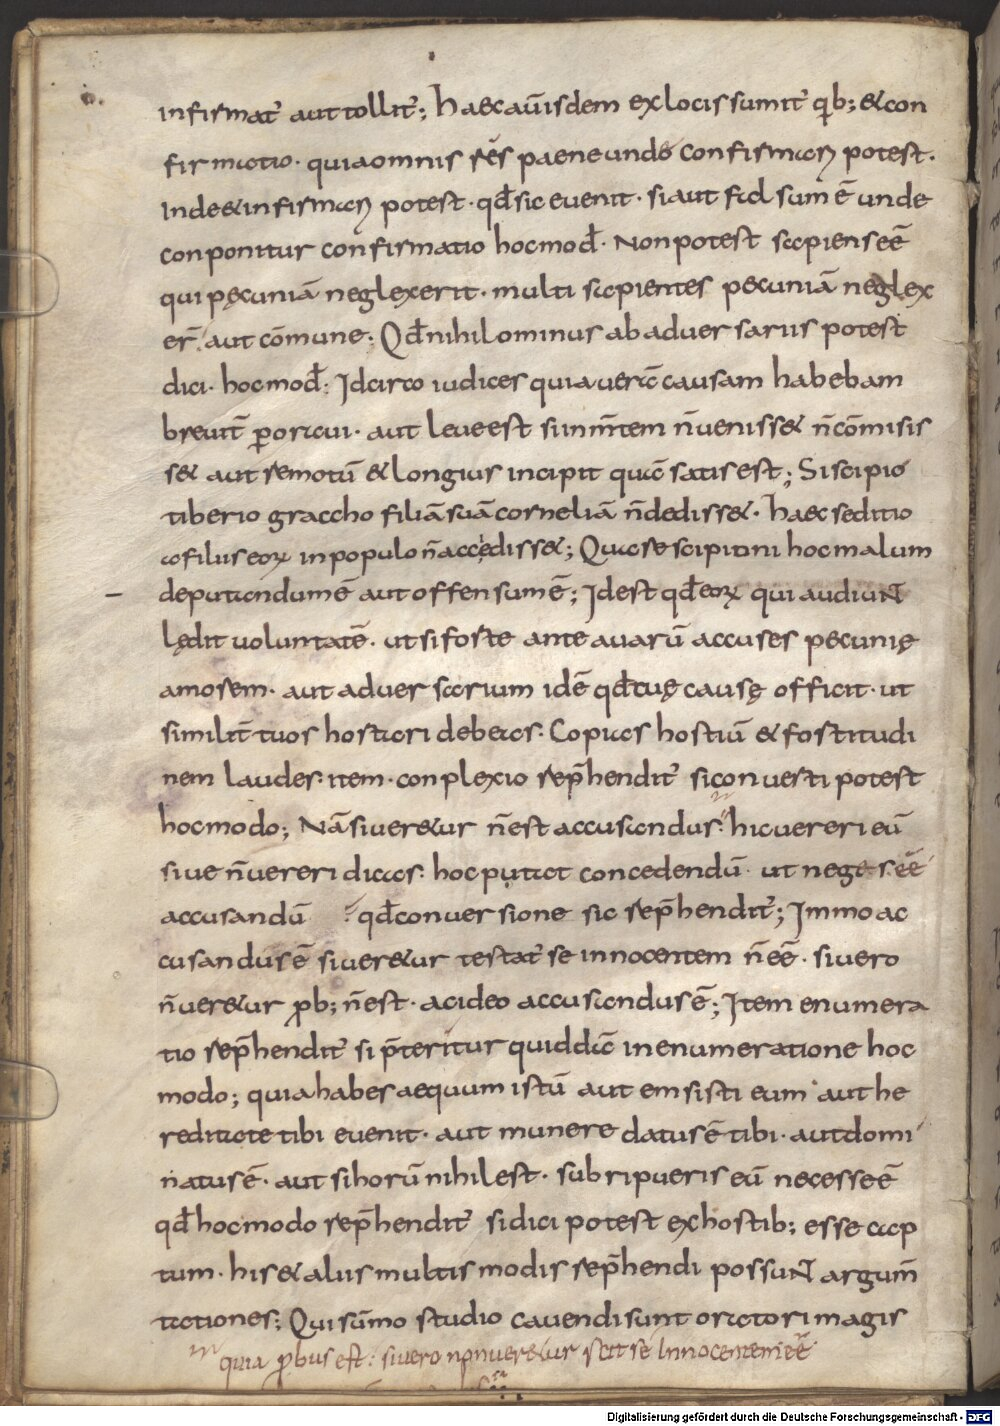 infirmat̄ aut tollit̄; haec aūisdem ex locis sumit̄ qib; & con
firmatio. quia omnis res paene unde confirmari potest.
Inde & infirmari potest. qd̄ sic evenit. si aut fid sum ē unde
conponitur confirmatio hoc mod̄. Non potest sapiens eē
qui pęcuniā neglexerit. multi sapientes pecuniā neglex
er̄. aut cōmune; Qd̄ nihilominus ab adversariis potest
dici. hoc mod̄: Idcirco iudices quia verā causam habebam
brevit̄ p̄oravi. aut leve est si in m̄tem n̄ venisse& n̄ cōmisis
s& aut remotū & longius incipit quā satis est; Si scipio
tiberio graccho filiā suā corneliā n̄ dediss&. haec seditio
a filiis eorꝝ in populo n̄ accędiss&; Quare scipioni hoc malum
deputandum ē aut offensum ē; Id est qd̄ eorꝝ qui audiunt
lędit voluntatē. ut si forte ante avarū accuses pecunię
amorem. aut adversarium idē qd̄ tuę causę officit. ut
similit̄ tuos hortari debeas. Copias hostiū & fortitudi
nem laudes. item. conplexio rep̄hendit̄ si converti potest
hoc modo; Nā si ver&ur n̄ est accusandus. hic vereri eū
sive n̄ vereri dicas. hoc putat concedendū. ut neges eē
accusandū qd̄ conversione sic rep̄hendit̄; Immo ac
cusandus ē si ver&ur testat̄ se innocentem n̄ eē. si vero
n̄ ver&ur p̄b; n̄ est. ac ideo accusandus ē; Item enumera
tio rep̄hendit̄ si p̄teritur quiddā in enumeratione hoc
modo; quia habes aequum istū aut emsisti eum aut he
reditate tibi evenit. aut munere datus ē tibi. aut domi
natus ē. aut si horū nihil est. subripueris eū necesse ē
qd̄ hoc modo rep̄hendit̄ si dici potest ex hostib; esse cap
tum. his & aliis multis modis rep̄hendi possunt argum̄
tationes; Qui sūmo studio cavendi sunt oratori magis
quia p̄bus est: si vero non ver&ur scit se Innocentem eē